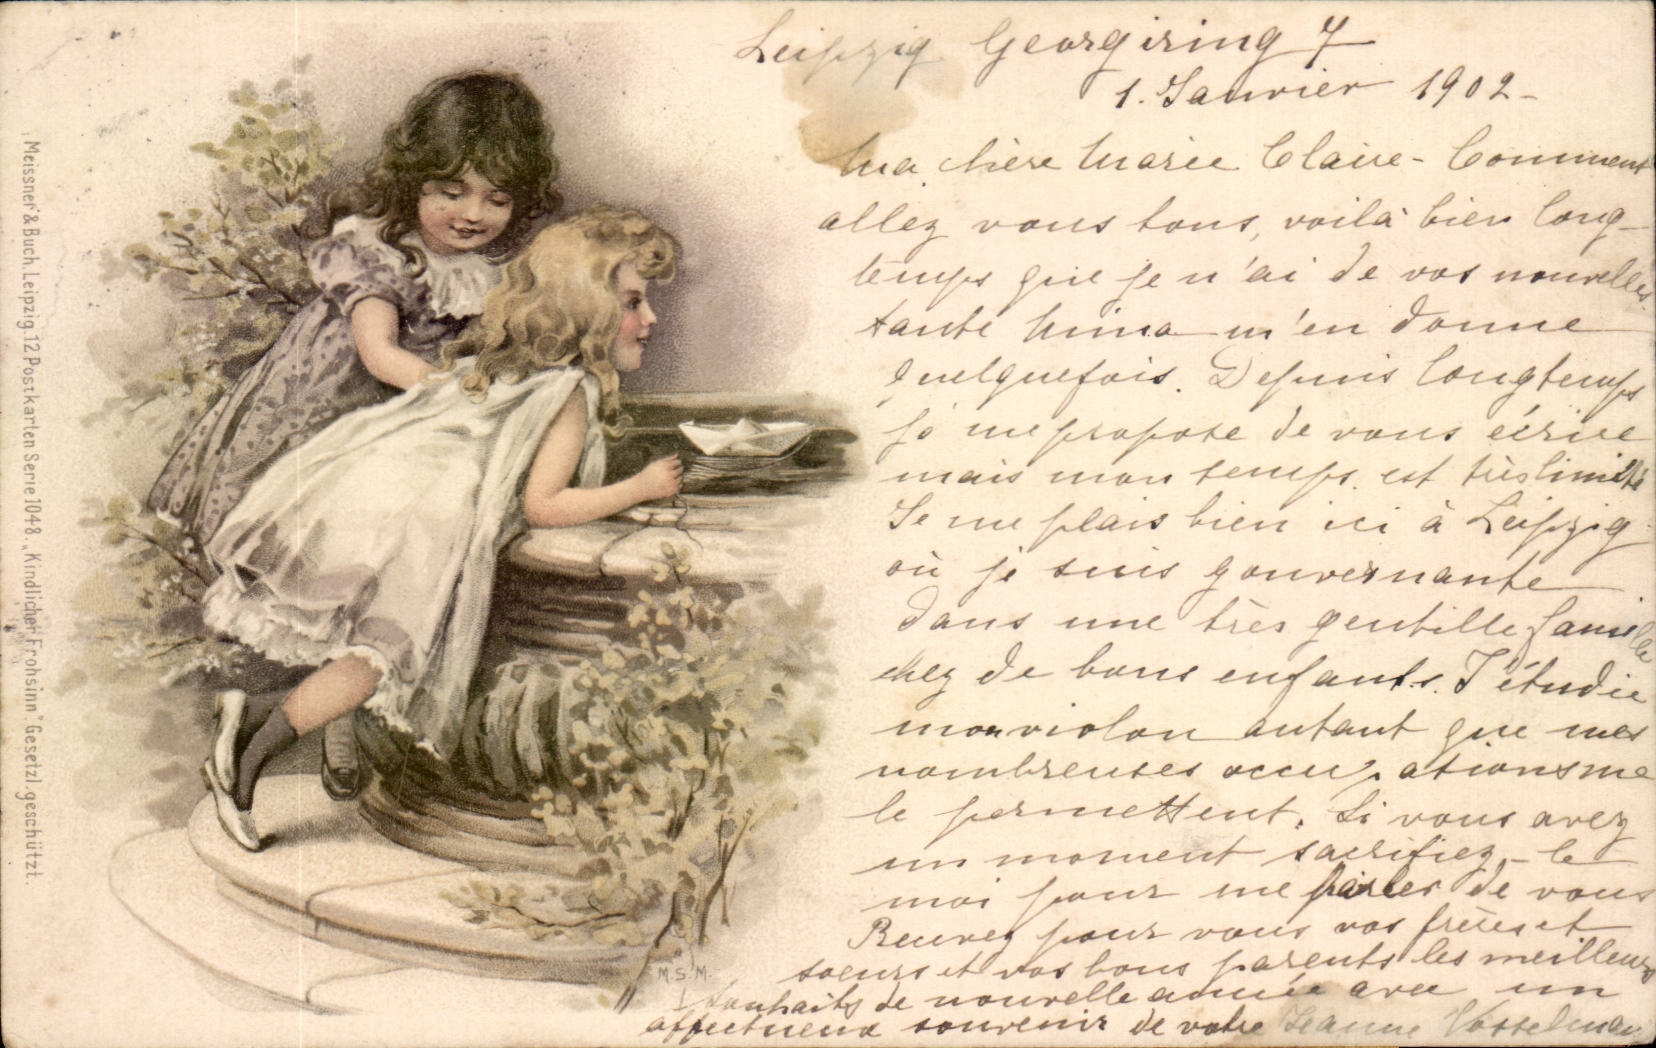 Leipzig Georgiring 7
1. Janvier 1902 -
Ma chère Marie Claire - Comment
allez vous tous, voilà bien long-
temps que je n'ai de vos nouvelles
tante Nina m'en donne
quelquefois. Depuis longtemps
je me propose de vous écrire
mais mon temps est très limité
Je me plais bien ici à Leipzig
où je suis gouvernante
dans une très gentille famille
chez de bons enfants. J'étudie
mon violon autant que mes
nombreuses occupations me
le permettent. Si vous avez
un moment sacrifiez-le
moi pour me parler de vous
Recevez pour vous vos frères et
soeurs et vos bons parents les meilleurs
souhaits de nouvelle année avec un
affectueux souvenir de votre Jeanne
M.S.M.
Meissner & Buch, Leipzig. 12 Postkarten Serie 1048. „Kindlicher Frohsinn". Gesetzl. geschützt.